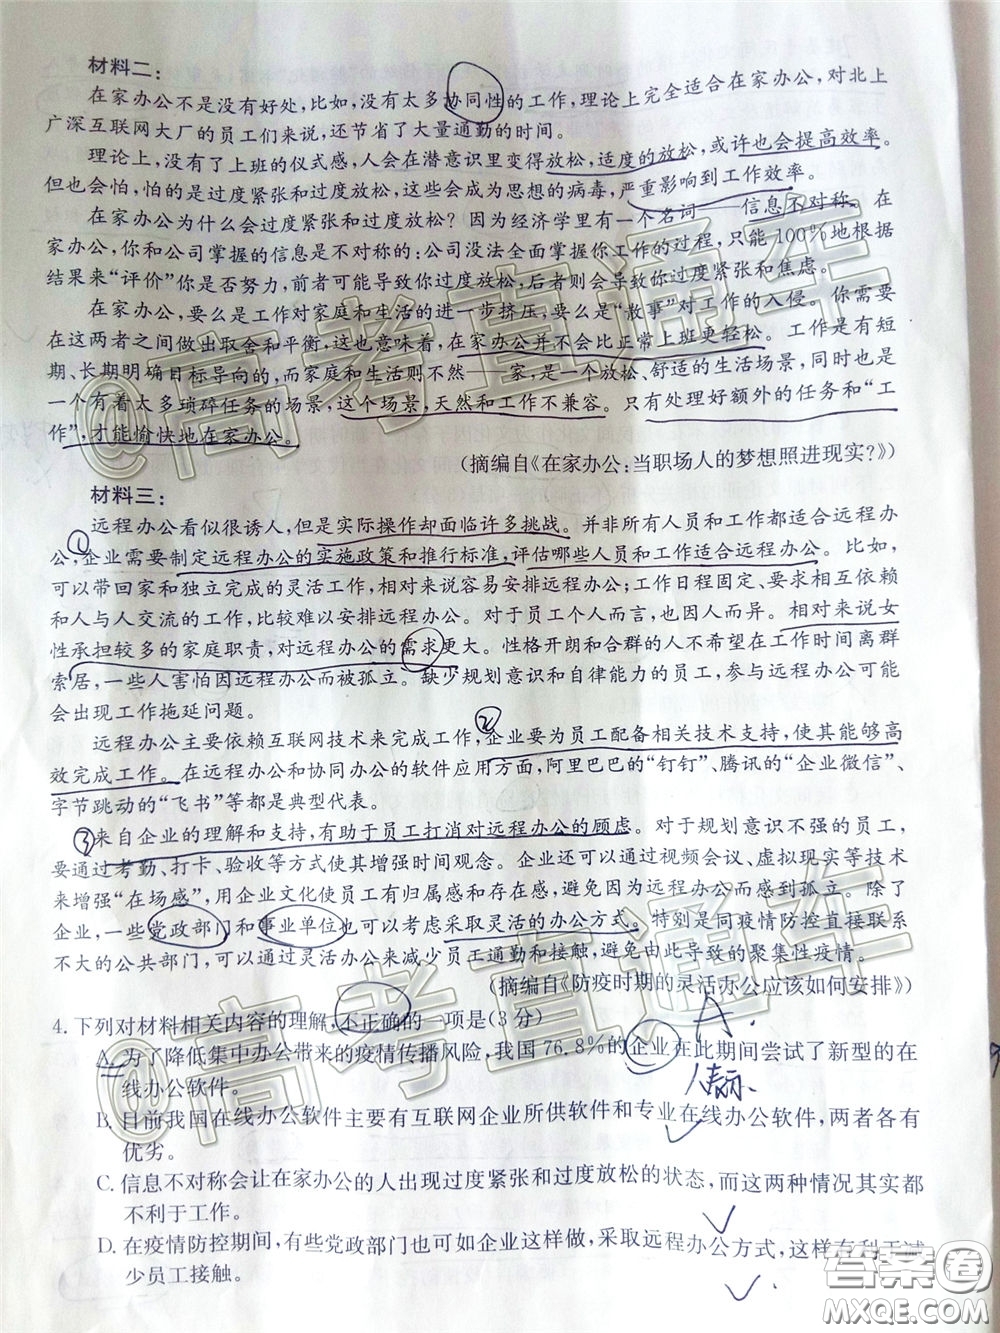 材料二：
在家办公不是没有好处，比如，没有太多协同性的工作，理论上完全适合在家办公，对北上
广深互联网大厂的员工们来说，还节省了大量通勤的时间。
理论上，没有了上班的仪式感，人会在潜意识里变得放松，适度的放松，或许也会提高效率。
但也会怕，怕的是过度紧张和过度放松，这些会成为思想的病毒，严重影响到工作效率。
在家办公为什么会过度紧张和过度放松？因为经济学里有一个名词——信息不对称。在
家办公，你和公司掌握的信息是不对称的：公司没法全面掌握你工作的过程，只能100%地根据
结果来“评价”你是否努力，前者可能导致你过度放松，后者则会导致你过度紧张和焦虑。
在家办公，要么是工作对家庭和生活的进一步挤压，要么是“散事”对工作的入侵。你需要
在这两者之间做出取舍和平衡，这也意味着，在家办公并不会比正常上班更轻松。工作是有短
期、长期明确目标导向的，而家庭和生活则不然——家，是一个放松、舒适的生活场景，同时也是
一个有着太多琐碎任务的场景，这个场景，天然和工作不兼容。只有处理好额外的任务和“工
作”，才能愉快地在家办公。
（摘编自《在家办公：当职场人的梦想照进现实？》）
材料三：
远程办公看似很诱人，但是实际操作却面临许多挑战。并非所有人员和工作都适合远程办
公，企业需要制定远程办公的实施政策和推行标准，评估哪些人员和工作适合远程办公。比如，
可以带回家和独立完成的灵活工作，相对来说容易安排远程办公；工作日程固定、要求相互依赖
和人与人交流的工作，比较难以安排远程办公。对于员工个人而言，也因人而异。相对来说女
性承担较多的家庭职责，对远程办公的需求更大。性格开朗和合群的人不希望在工作时间离群
索居，一些人害怕因远程办公而被孤立。缺少规划意识和自律能力的员工，参与远程办公可能
会出现工作拖延问题。
远程办公主要依赖互联网技术来完成工作，企业要为员工配备相关技术支持，使其能够高
效完成工作。在远程办公和协同办公的软件应用方面，阿里巴巴的“钉钉”、腾讯的“企业微信”、
字节跳动的“飞书”等都是典型代表。
来自企业的理解和支持，有助于员工打消对远程办公的顾虑。对于规划意识不强的员工，
要通过考勤、打卡、验收等方式使其增强时间观念。企业还可以通过视频会议、虚拟现实等技术
来增强“在场感”，用企业文化使员工有归属感和存在感，避免因为远程办公而感到孤立。除了
企业，一些党政部门和事业单位也可以考虑采取灵活的办公方式。特别是同疫情防控直接联系
不大的公共部门，可以通过灵活办公来减少员工通勤和接触，避免由此导致的聚集性疫情。
（摘编自《防疫时期的灵活办公应该如何安排》）
4.下列对材料相关内容的理解，不正确的一项是（3分）
A.为了降低集中办公带来的疫情传播风险，我国76.8%的企业在此期间尝试了新型的在
线办公软件。
B.目前我国在线办公软件主要有互联网企业所供软件和专业在线办公软件，两者各有
优劣。
C.信息不对称会让在家办公的人出现过度紧张和过度放松的状态，而这两种情况其实都
不利于工作。
D.在疫情防控期间，有些党政部门也可如企业这样做，采取远程办公方式，这样有利于减
少员工接触。
A.
①
②
③
@高考直通车
@高考直通车
@高考直通车
答案圈
MXQE.COM